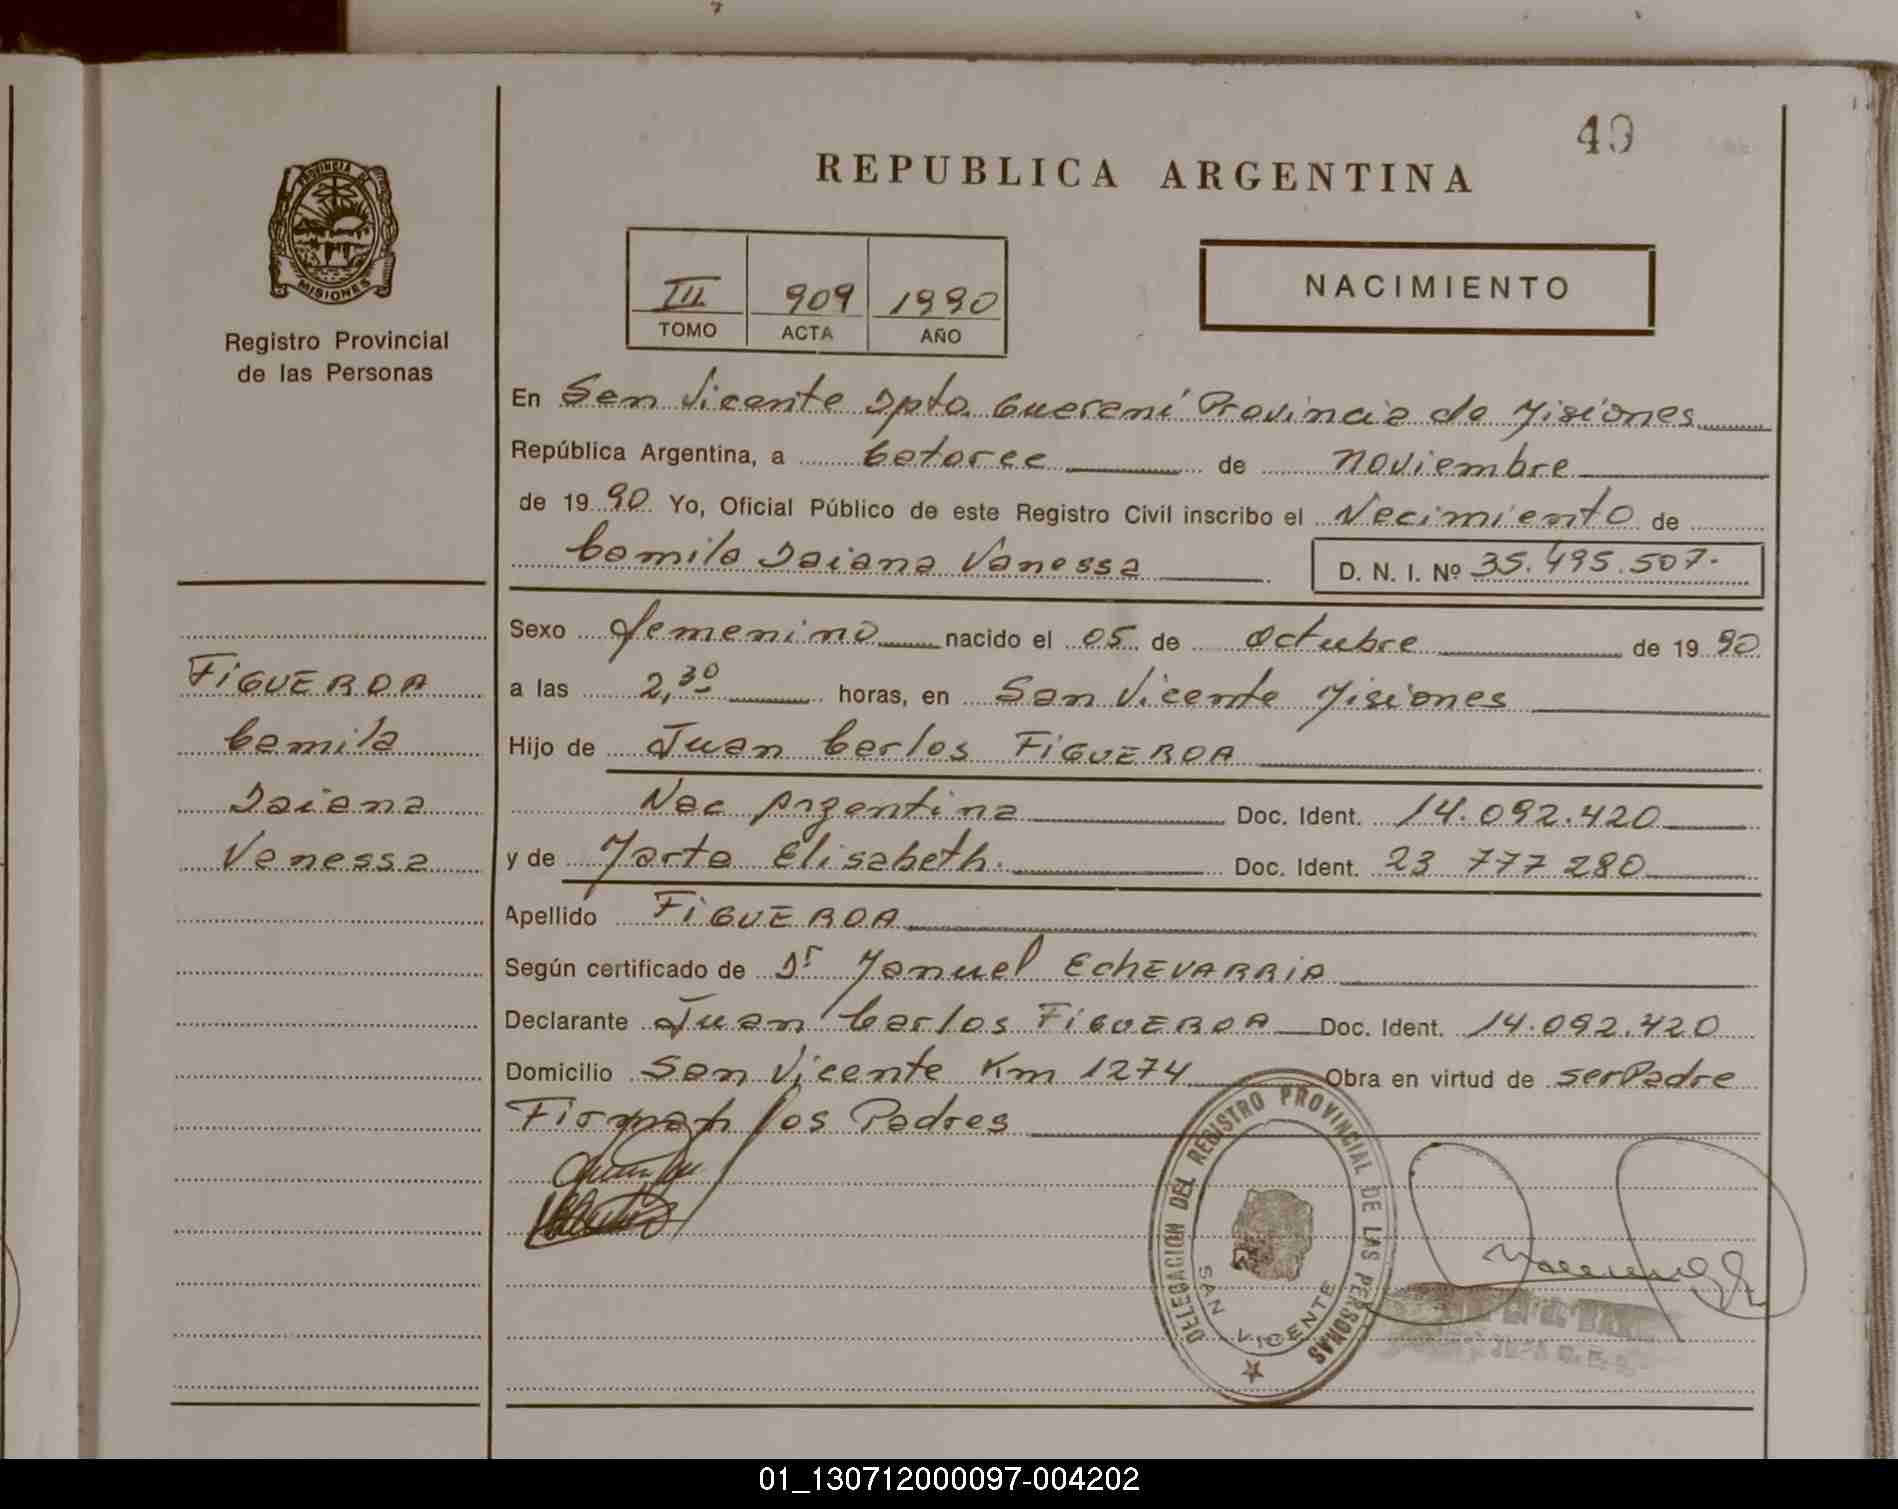 49
REPUBLICA ARGENTINA
PROVINCIA DE
MISIONES
Registro Provincial
de las Personas
III 909 1990
TOMO ACTA AÑO
NACIMIENTO
En San Vicente Dpto. Guaraní Provincia de Misiones
República Argentina, a Catorce de Noviembre
de 1990 Yo, Oficial Público de este Registro Civil inscribo el Nacimiento de
Camila Daiana Vanessa D. N. I. Nº 35.495.507.
Sexo Femenino nacido el 05 de Octubre de 1990
a las 2,30 horas, en San Vicente Misiones
Hijo de Juan Carlos FIGUEROA
Nac Argentina Doc. Ident. 14.092.420
y de Marta Elisabeth. Doc. Ident. 23 777 280
Apellido FIGUEROA
Según certificado de Dr Manuel EChEVARRIA
Declarante Juan Carlos FIGUEROA Doc. Ident. 14.092.420
Domicilio San Vicente Km 1274 Obra en virtud de ser Padre
Firman los Padres
FIGUEROA
Camila
Daiana
Vanessa
DELEGACION DEL REGISTRO PROVINCIAL DE LAS PERSONAS
SAN VICENTE
01_130712000097-004202